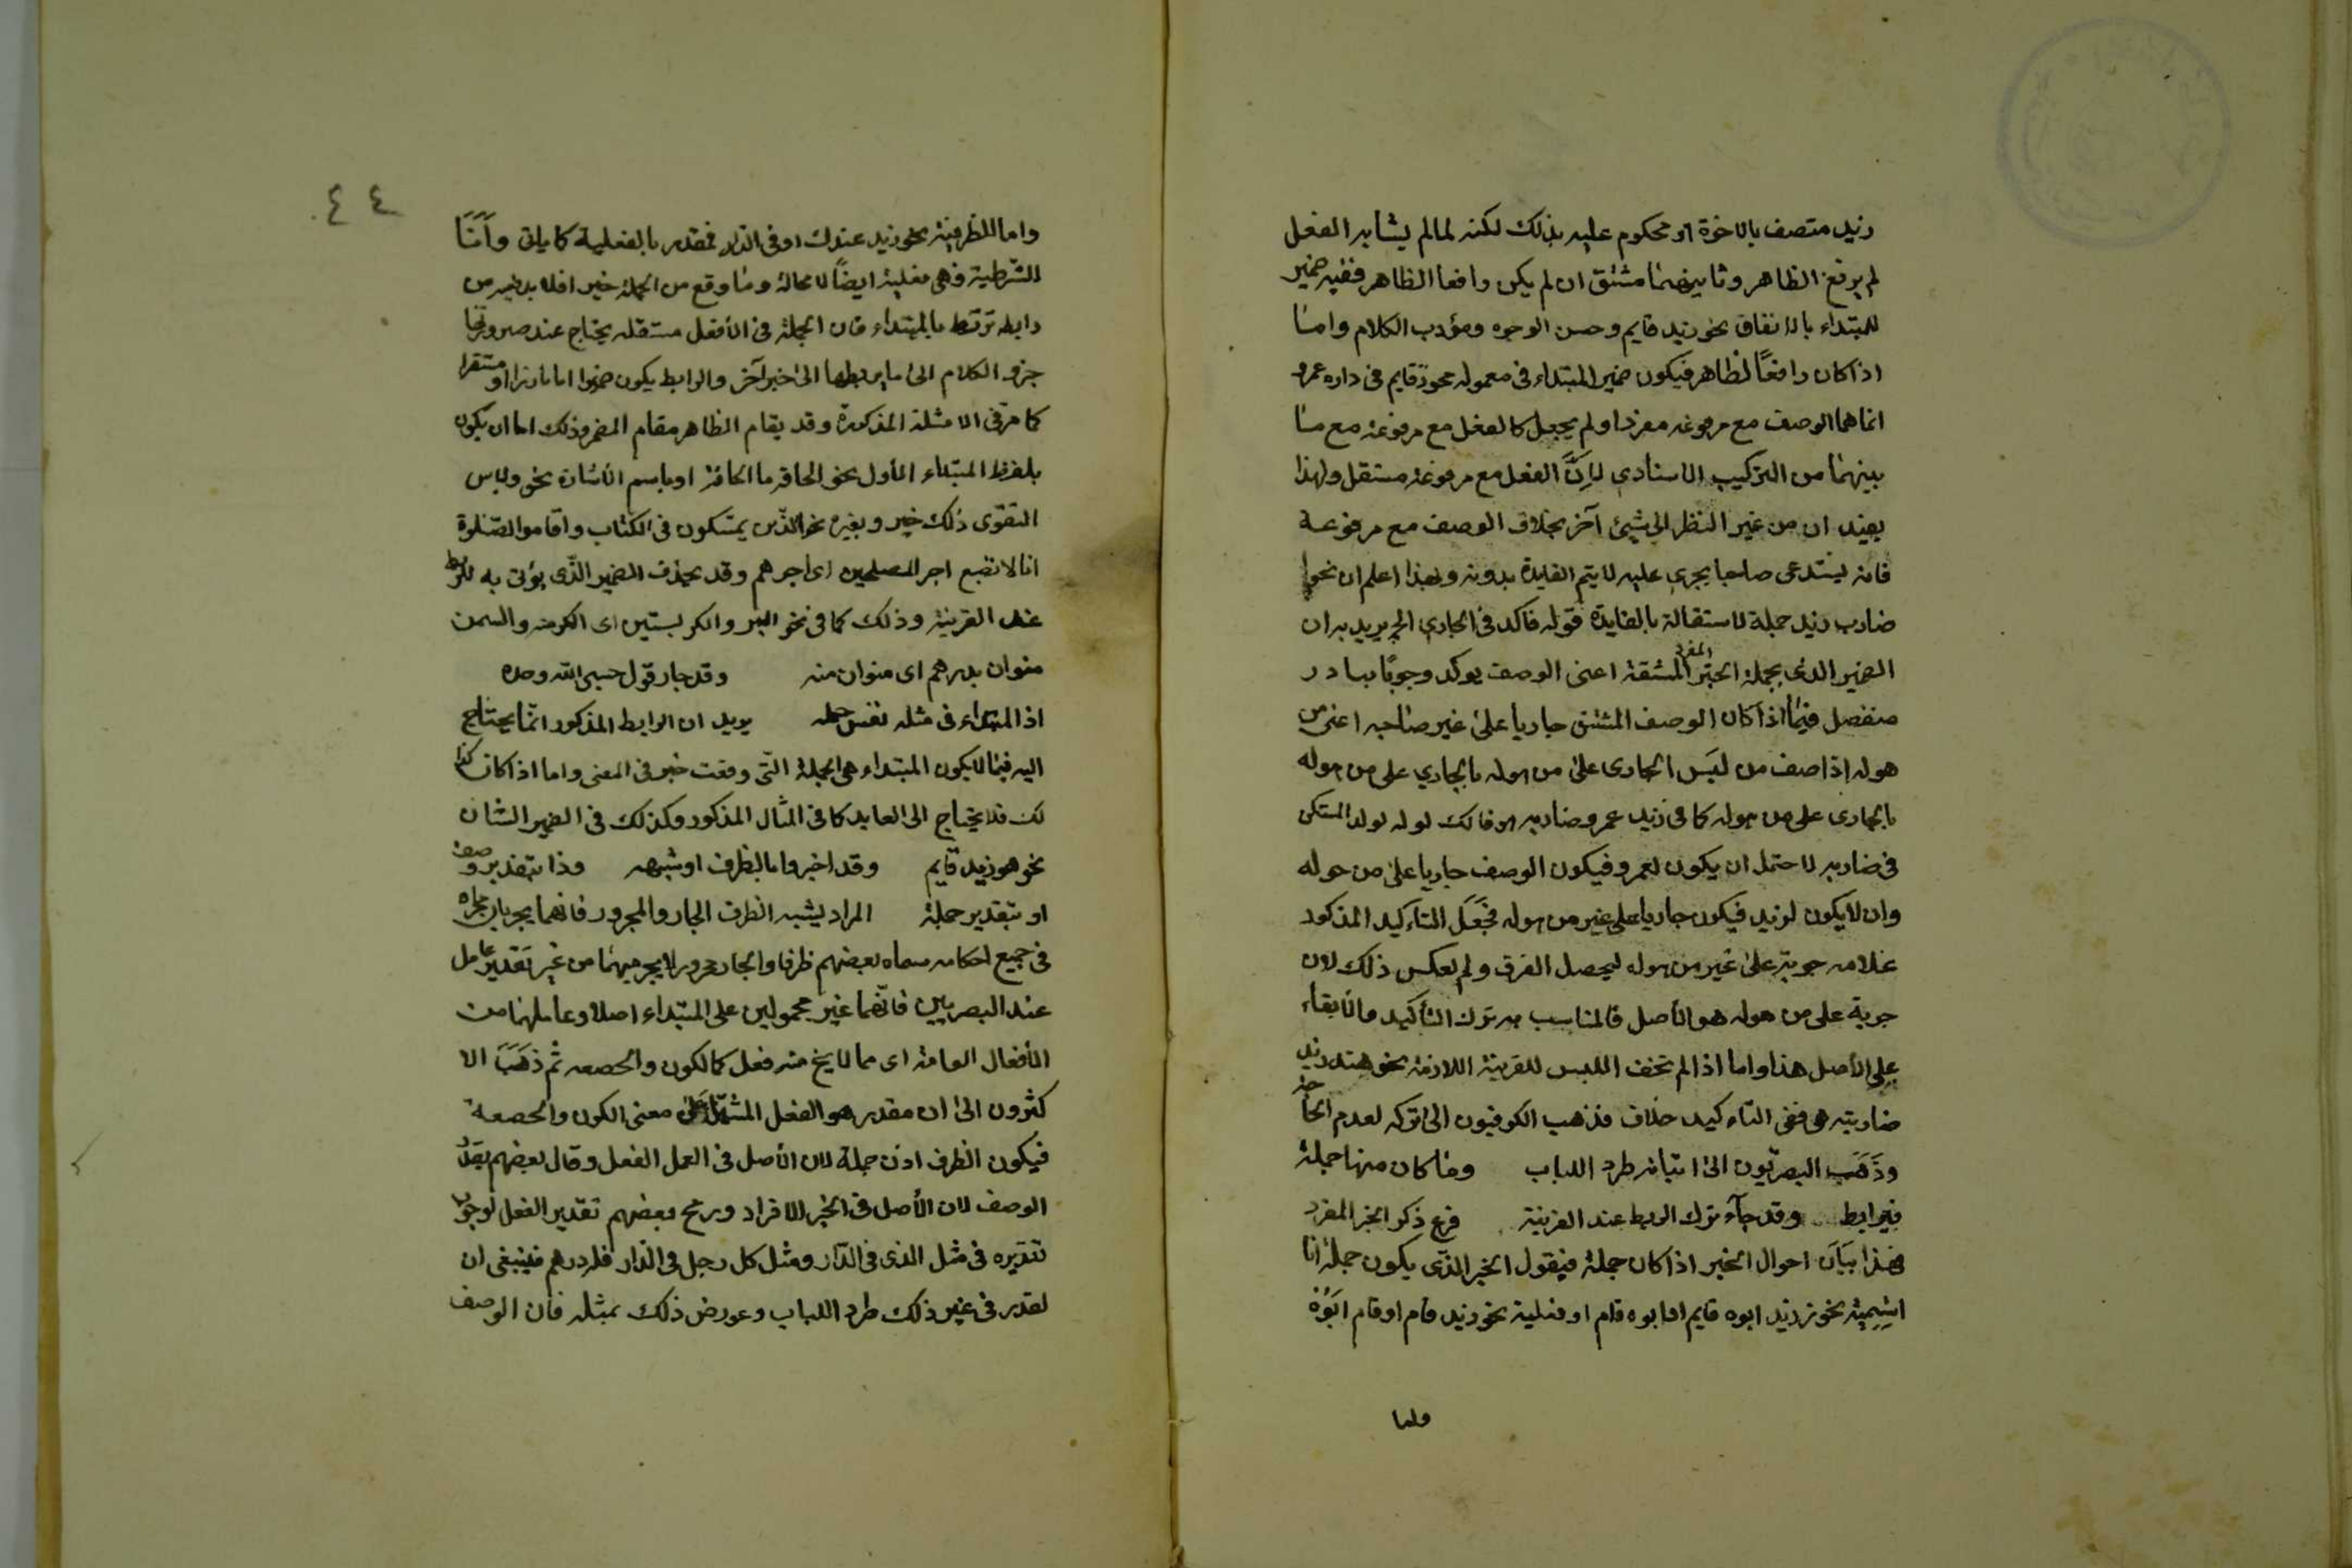 زيد متصف بالاخوة او محكوم عليه بذلك لكنه لما لم يشابه الفعل
لم يرفع الظاهر وثانيهما مشتق ان لم يكن رافعا الظاهر ففيه ضمير
للمبتداء بالاتفاق نحو زيد قايم وحسن الوجوه ومؤدب الكلام واما
اذا كان رافعًا لظاهر فيكون ضمير المبتداء في معموله نحو زيد قايم في داره عمرو
انما هما الوصف مع مرفوعه مفردا ولم يجعل كالفعل مع مرفوعه مع ما
بينهما من التركيب الاسنادي لانَّ الفعل مع مرفوعه مستقل ولهذا
يفيد ان من غير النظر الى شيئ آخر بخلاف الوصف مع مرفوعه
فانه يستدعى صاحبا يجرى عليه لا يتم الفايدة بدونه وبهذا اعلم ان نحو
ضارب زيد جملة لاستقالة بالفايدة قوله فاكد في الجاري الخ يريد به ان
الضمير الذى بجملة الخبر المفرد المشتقة اعنى الوصف يوكد وجوبًا ببارز
منفصل فيما اذا كان الوصف المشتق جاريا على غير صاحبه اعنى من
هوله اذا صف من ليَس الجارى على من هوله بالجاري على من هوله
بالجارى على من هوله كما في زيد عمرو ضاربه هو فانك لوله لولد المستكن
في ضاربه لاحتمل ان يكون لعمرو فيكون الوصف جاريا على من هوله
وان لا يكون لزيد فيكون جاريا على غير من هوله فجَعَل التاكيد المذكور
علامه جريته على غير من هوله ليحصل الفرق ولم يعكس ذلك لان
جرية على من هوله هو الأصل فالمناسب به ترك التأكيد والابقاء
على الأصل هذا واما اذا لم تخف اللبس للقرينة اللازمة نحو هند زيد
ضاربته هى ففى التاكيد خلاف فذهب الكوفيون الى تركه لعدم الحاجة
وذَهَب البصريّون الى اتيانه طرد اللباب وما كان منها جملة
فبرابط وقد جآء ترك الربط عند القرينة فرغ ذكر الخبر المفرد
فهذا بيَان احوال الخبر اذا كان جملة فيقول الخبر الذّى يكون جملة اما
اسِميته نحو زيد ابوه قايم او ابوه قام او فعلية نحو زيد قام او قام ابَوُه
واما
٤٤
واما الظرفية نحو زيد عندك او في الدار فمقدر بالفعلية كما ياتى وأمَّا
الشرطية فهى فعلية ايضًا لا محالة وما وقع من الجملة خبر افلا بد فيه من
رابطه ترتبط بالمبتداء فان الجملة في الأفعل مستقله يحتاج عند صيرورتها
جزو الكلام الى ما يربطها الى خبر آخر والرابط يكون ضميرا اما بارزا او مستقرا
كما مرّ في الامثلة المذكورة وقد يقام الظاهر مقام المضمر وذلك اما ان يكون
بلفظ المبتداء المأول نحو الحاقه ما الحاقة او باسم الأشارة نحو ولباس
التقوى ذلك خير وبغيره نحو الذّين يمسّكون في الكتاب واقاموا الصّلوة
انا لا نضيع اجر المصلحين اى اجرهم وقد يحذف الضمير الذّى يؤتى به للربط
عند القرينة وذلك كما في نحو البر والكر بستين اى الكر منه والسمن
منوان بدرهم اى منوان منه وقد جاز قول حسبى الله وحده
اذ المبتداء في مثله نفس جمله يريد ان الرابط المذكور انّما يحتاج
اليه فيما لا يكون المبتداء هى الجملة التّى وقعت خبر في المعنى واما اذا كان كذا
لك فلا يحتاج الى العايد كما في المثال المذكور وكذلك في الضمير الشان
نحو هو زيد قايم وقد اخبروا بالظرف او شبهه وذا بتقدير وصف
او بتقدير جملة المراد يشبه الظرف الجار والمجرور فانهما يجريان مجراه
في جميع احكامه سماه بعضهم ظرفا والجار مجرور لا يجر ميهما من غير تَقدير عامل
عند البصريين فانّهما غير محمولين على المبتداء اصلا وعاملهما من
الأفعال العامة اى مما لا يخ منه فعل كالكون والحصعه ثم ذهَبَ الا
كثرون الى ان مقدر هو الفعل المشتمل على معنى الكون والحصعة
فيكون الظرف اذن جملة لان الأصل في العمل الفعل وقال بعضهم يقدّر
الوصف لان الأصل في الخبر الافراد ورجح بعضهم تقدير الفعل لوجوب
تقديره في مثل الذى في الدّار ومثل كل رجل في الدّار فله درهم فينبغى ان
لقدر في غير ذلك طرد اللباب وعورض ذلك بمثله فان الوصف